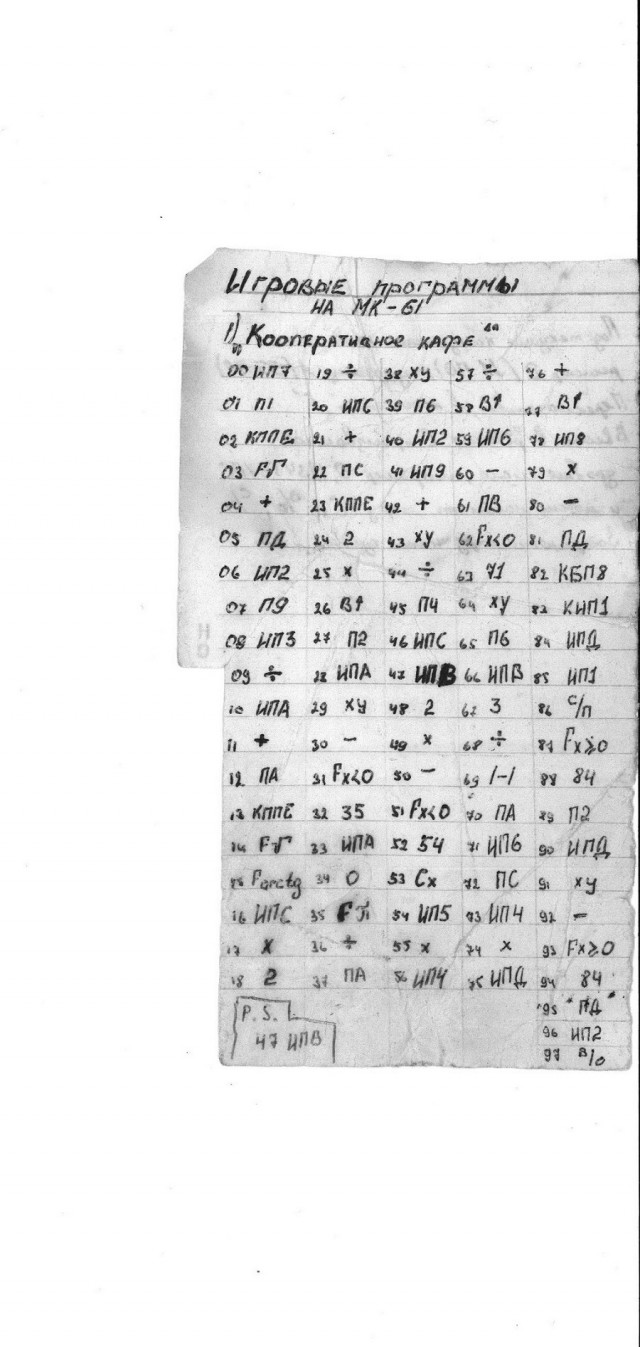 Игровые программы
на МК-61
1) Кооперативное кафе
00 ИП7 19 ÷ 38 ХУ 57 ÷ 76 +
01 П1 20 ИПС 39 П6 58 В↑ 77 В↑
02 КППЕ 21 + 40 ИП2 59 ИП6 78 ИП8
03 F√ 22 ПС 41 ИП9 60 − 79 х
04 + 23 КППЕ 42 + 61 ПВ 80 −
05 ПД 24 2 43 ХУ 62 Fx<0 81 ПД
06 ИП2 25 х 44 ÷ 63 71 82 КБП8
07 П9 26 В↑ 45 П4 64 ХУ 83 КИП1
08 ИП3 27 П2 46 ИПС 65 П6 84 ИПД
09 ÷ 28 ИПА 47 ИПВ 66 ИПВ 85 ИП1
10 ИПА 29 ХУ 48 2 67 3 86 С/П
11 + 30 − 49 х 68 ÷ 87 Fx≥0
12 ПА 31 Fx<0 50 − 69 /-/ 88 84
13 КППЕ 32 35 51 Fx<0 70 ПА 89 П2
14 F√ 33 ИПА 52 54 71 ИП6 90 ИПД
15 Farctg 34 0 53 Сх 72 ПС 91 ХУ
16 ИПС 35 Fπ 54 ИП5 73 ИП4 92 −
17 х 36 ÷ 55 х 74 х 93 Fx≥0
18 2 37 ПА 56 ИП4 75 ИПД 94 84
95 ПД
P.S.
96 ИП2
47 ИПВ
97 В/О